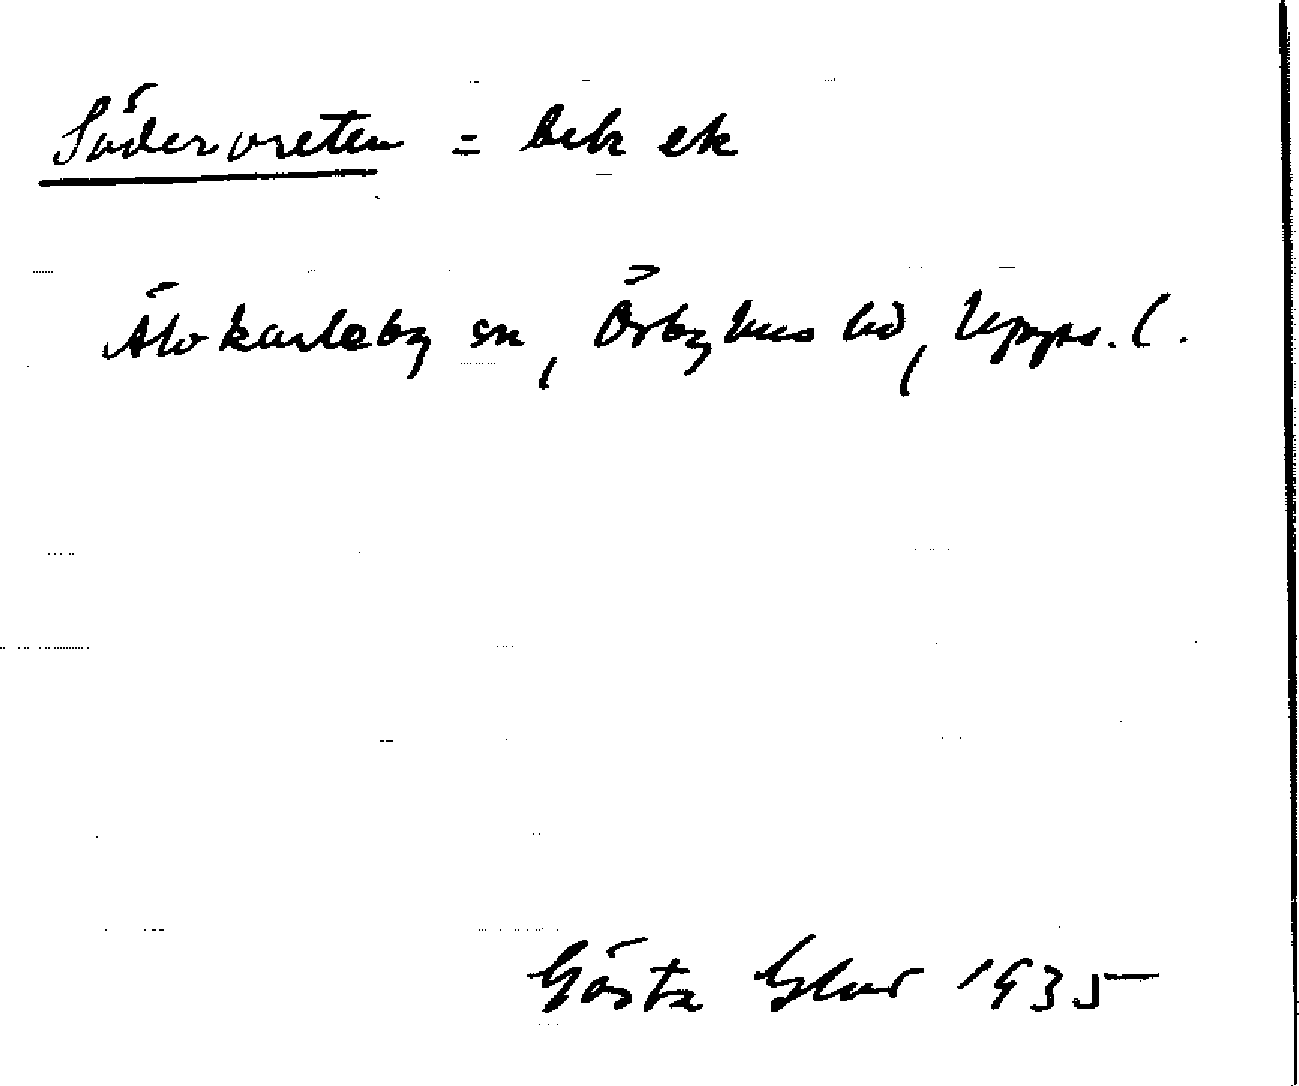 Södervreten = bek ek
Älvkarleby sn, Örbyhus hd, Upps. l.
Gösta Glas 1935